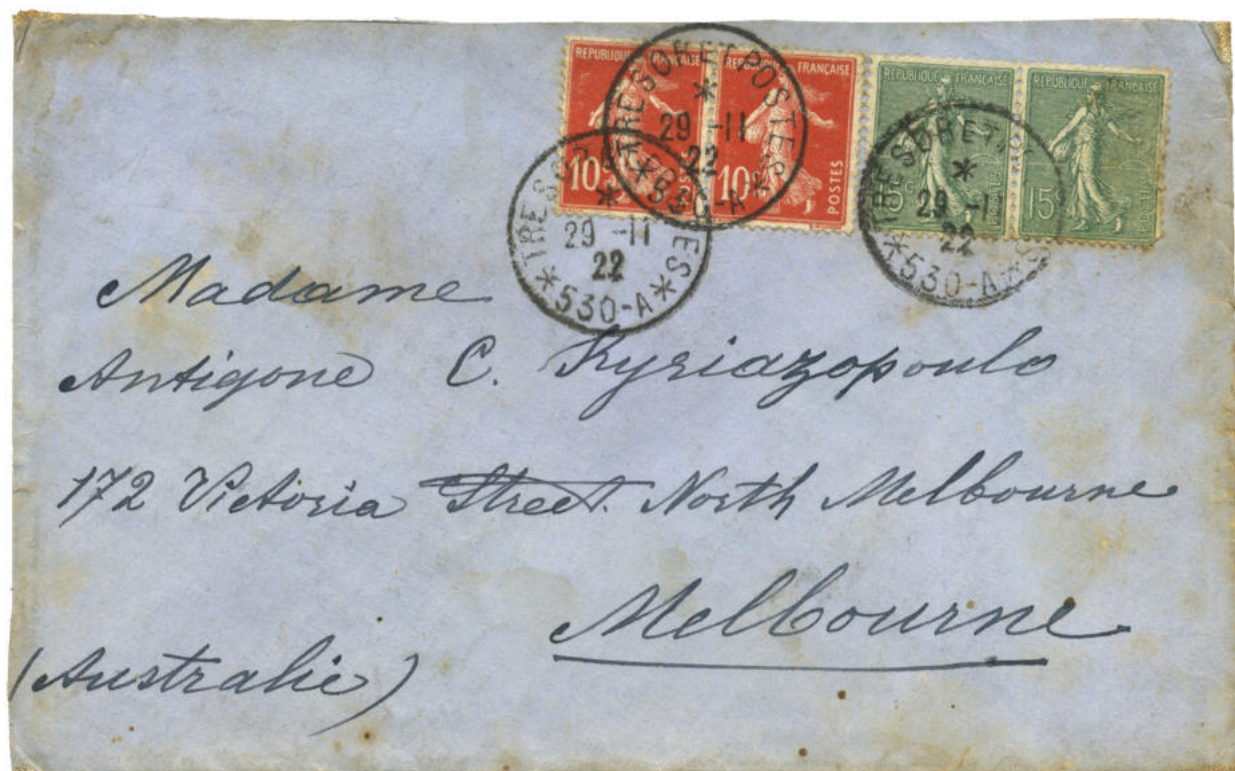 REPUBLIQUE FRANÇAISE
10c POSTES
REPUBLIQUE FRANÇAISE
10c POSTES
REPUBLIQUE FRANÇAISE
15c
REPUBLIQUE FRANÇAISE
15c
TRESOR ET POSTES
* 29 -11 22
*530-A*
TRESOR ET POSTES
* 29 -11 22
*530-A*
TRESOR ET
* 29 -1 22
*530-A*
Madame
Antigone C. Kyriazopoulo
172 Victoria Street. North Melbourne
Melbourne
(Australie)